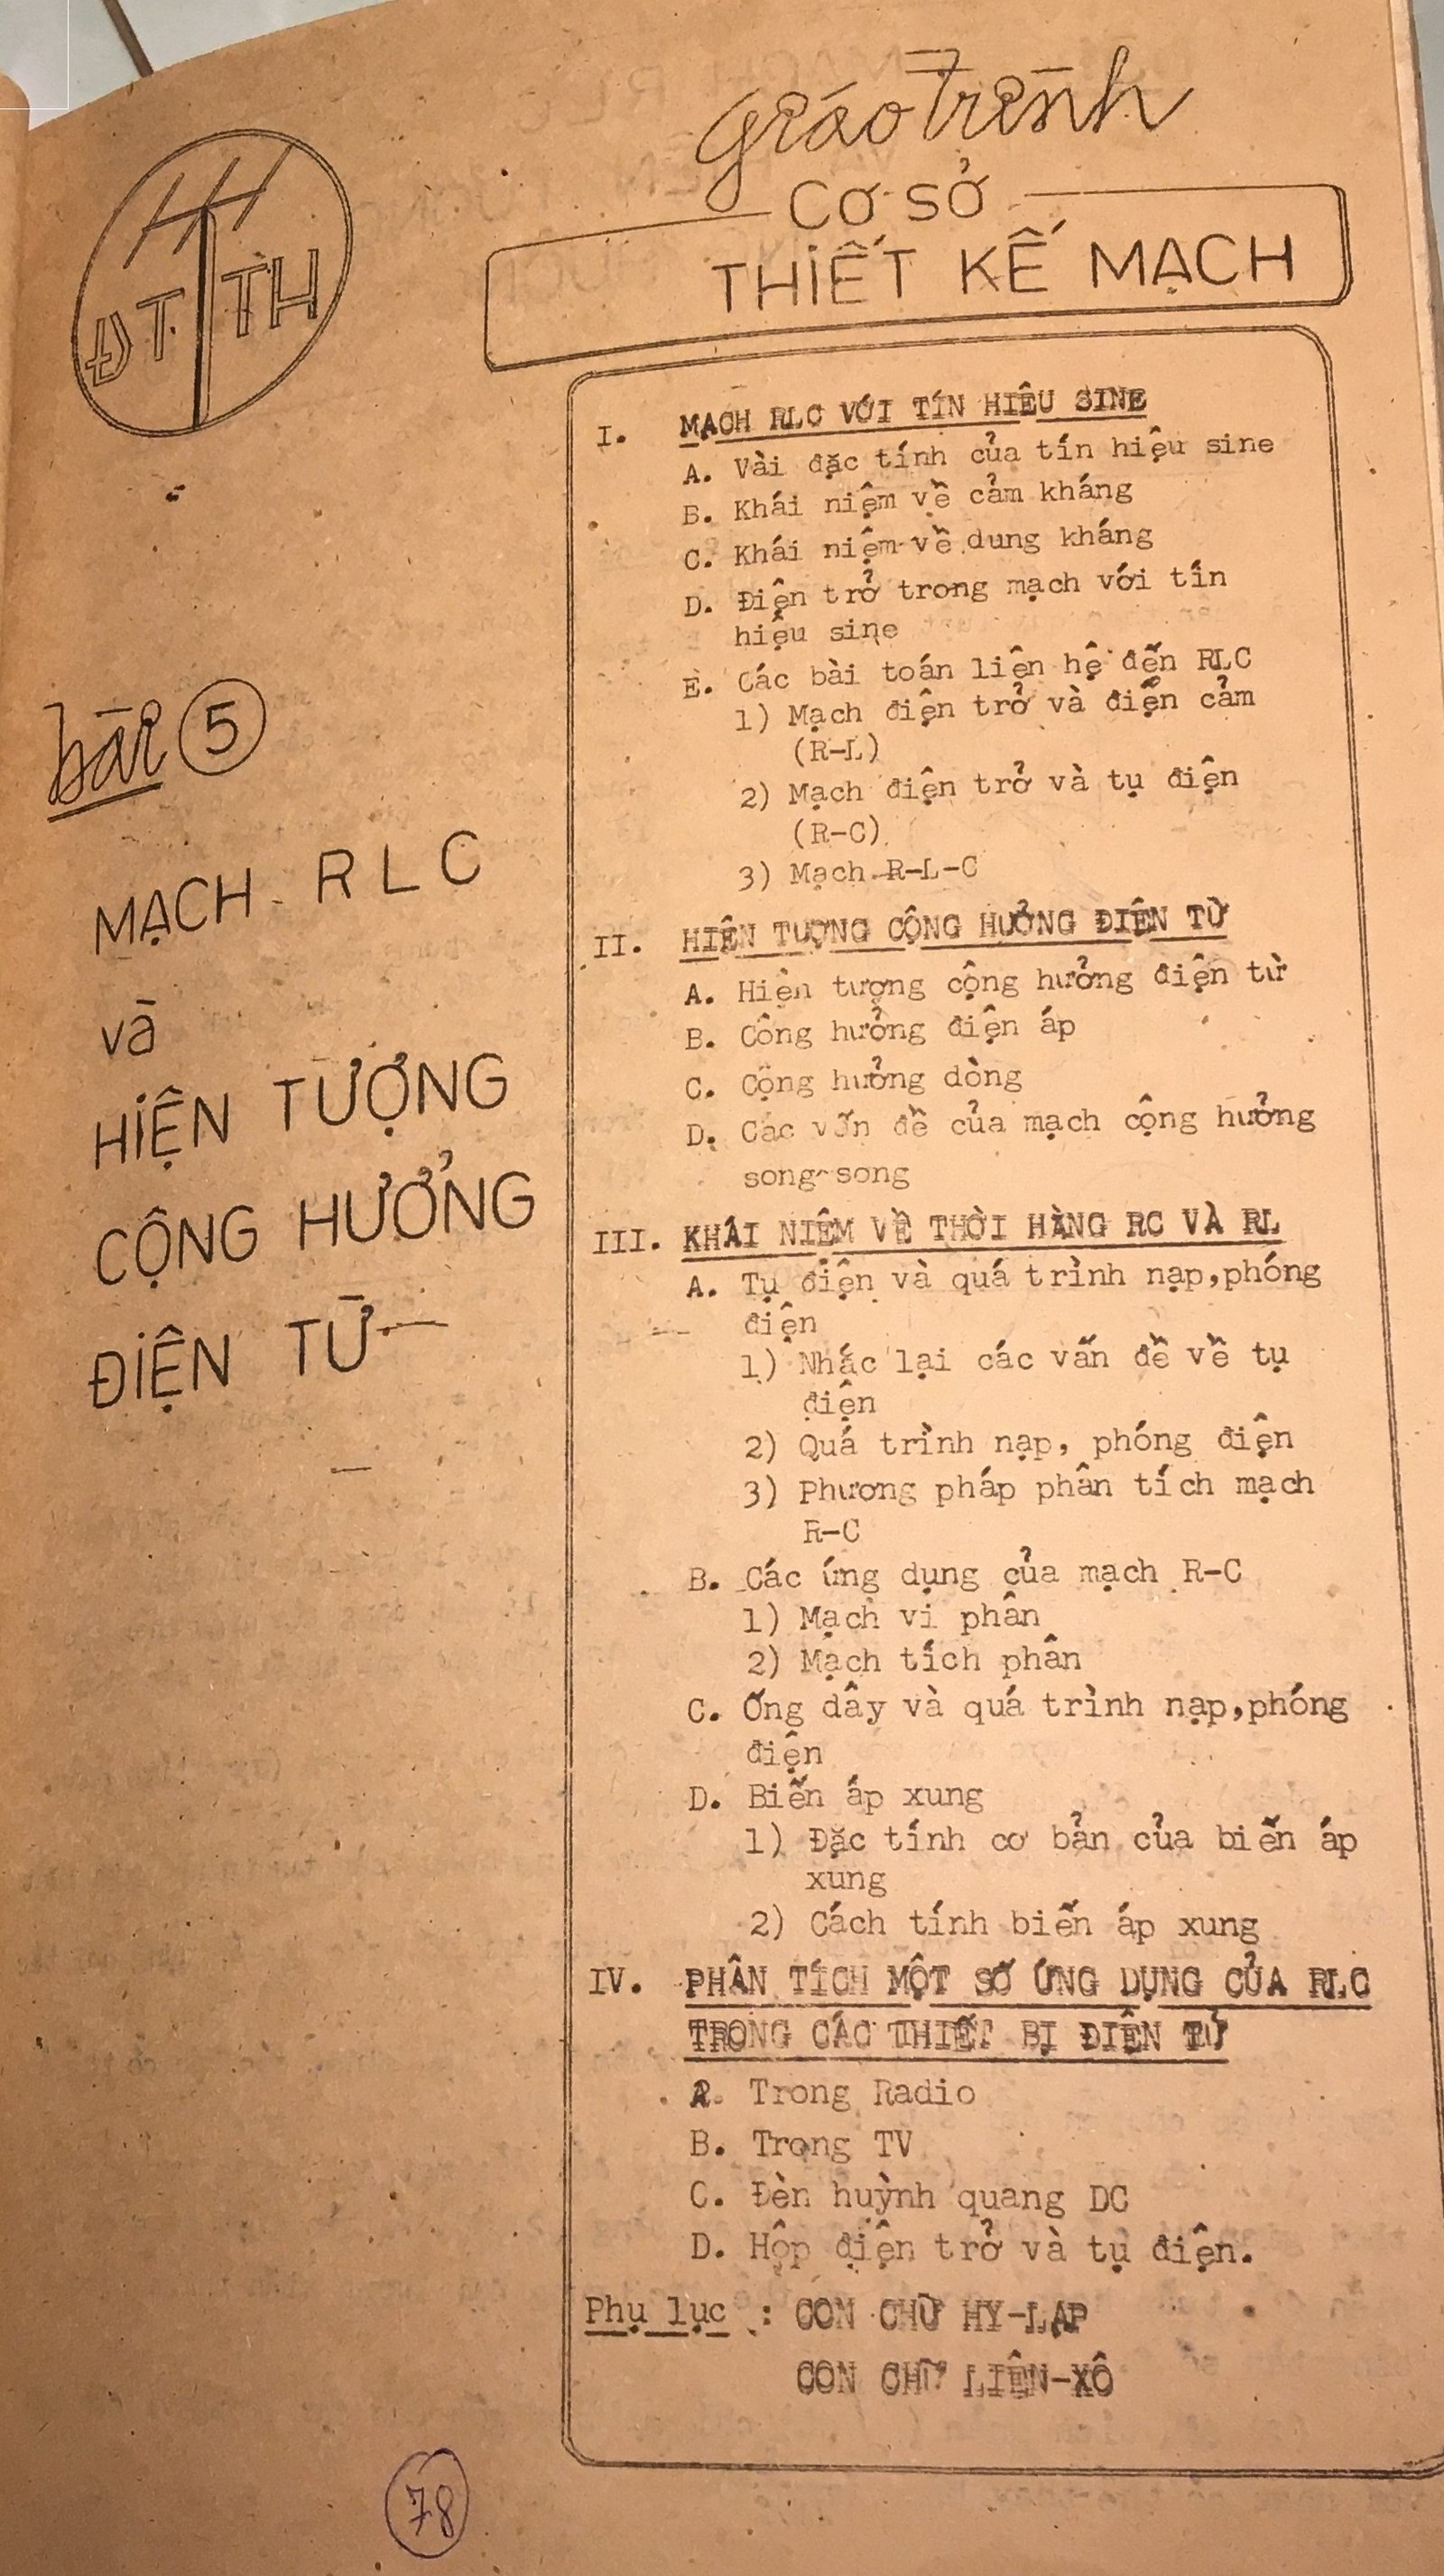 giáo trình
CƠ SỞ
THIẾT KẾ MẠCH
ĐT TH
bài 5
MẠCH RLC
và
HIỆN TƯỢNG
CỘNG HƯỞNG
ĐIỆN TỪ
I. MẠCH RLC VỚI TÍN HIỆU SINE
A. Vài đặc tính của tín hiệu sine
B. Khái niệm về cảm kháng
C. Khái niệm về dung kháng
D. Điện trở trong mạch với tín
hiệu sine
E. Các bài toán liên hệ đến RLC
1) Mạch điện trở và điện cảm
(R-L)
2) Mạch điện trở và tụ điện
(R-C)
3) Mạch R-L-C
II. HIỆN TƯỢNG CỘNG HƯỞNG ĐIỆN TỪ
A. Hiện tượng cộng hưởng điện từ
B. Cộng hưởng điện áp
C. Cộng hưởng dòng
D. Các vấn đề của mạch cộng hưởng
song song
III. KHÁI NIỆM VỀ THỜI HẰNG RC VÀ RL
A. Tụ điện và quá trình nạp,phóng
điện
1) Nhắc lại các vấn đề về tụ
điện
2) Quá trình nạp, phóng điện
3) Phương pháp phân tích mạch
R-C
B. Các ứng dụng của mạch R-C
1) Mạch vi phân
2) Mạch tích phân
C. Ống dây và quá trình nạp,phóng
điện
D. Biến áp xung
1) Đặc tính cơ bản của biến áp
xung
2) Cách tính biến áp xung
IV. PHÂN TÍCH MỘT SỐ ỨNG DỤNG CỦA RLC
TRONG CÁC THIẾT BỊ ĐIỆN TỬ
A. Trong Radio
B. Trong TV
C. Đèn huỳnh quang DC
D. Hộp điện trở và tụ điện.
Phụ lục : CON CHỮ HY-LẠP
CON CHỮ LIÊN-XÔ
78